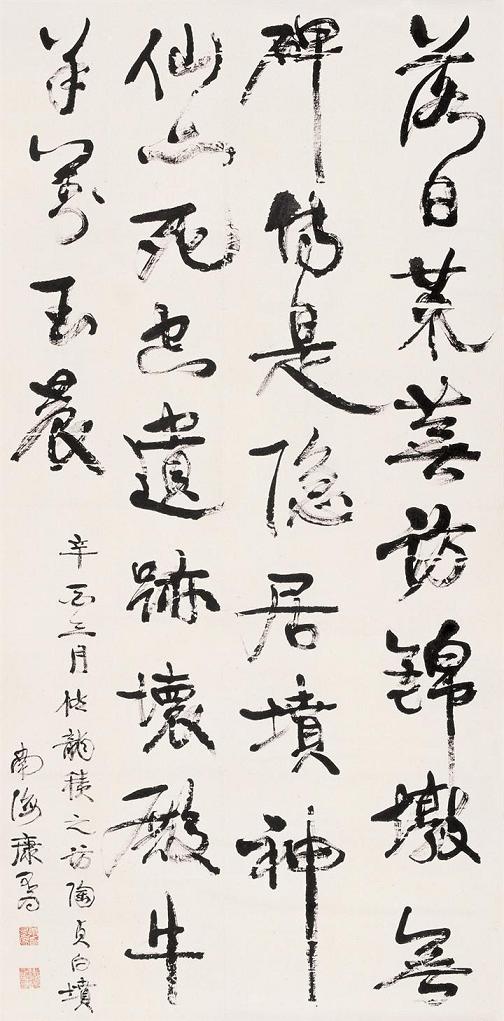 落日荒蕪訪錦墩無
碑傳是隱居墳神
仙亦死空遺跡壞殿牛
羊萬玉晨
辛酉三月偕龍積之訪陶貞白墳
南海康有為